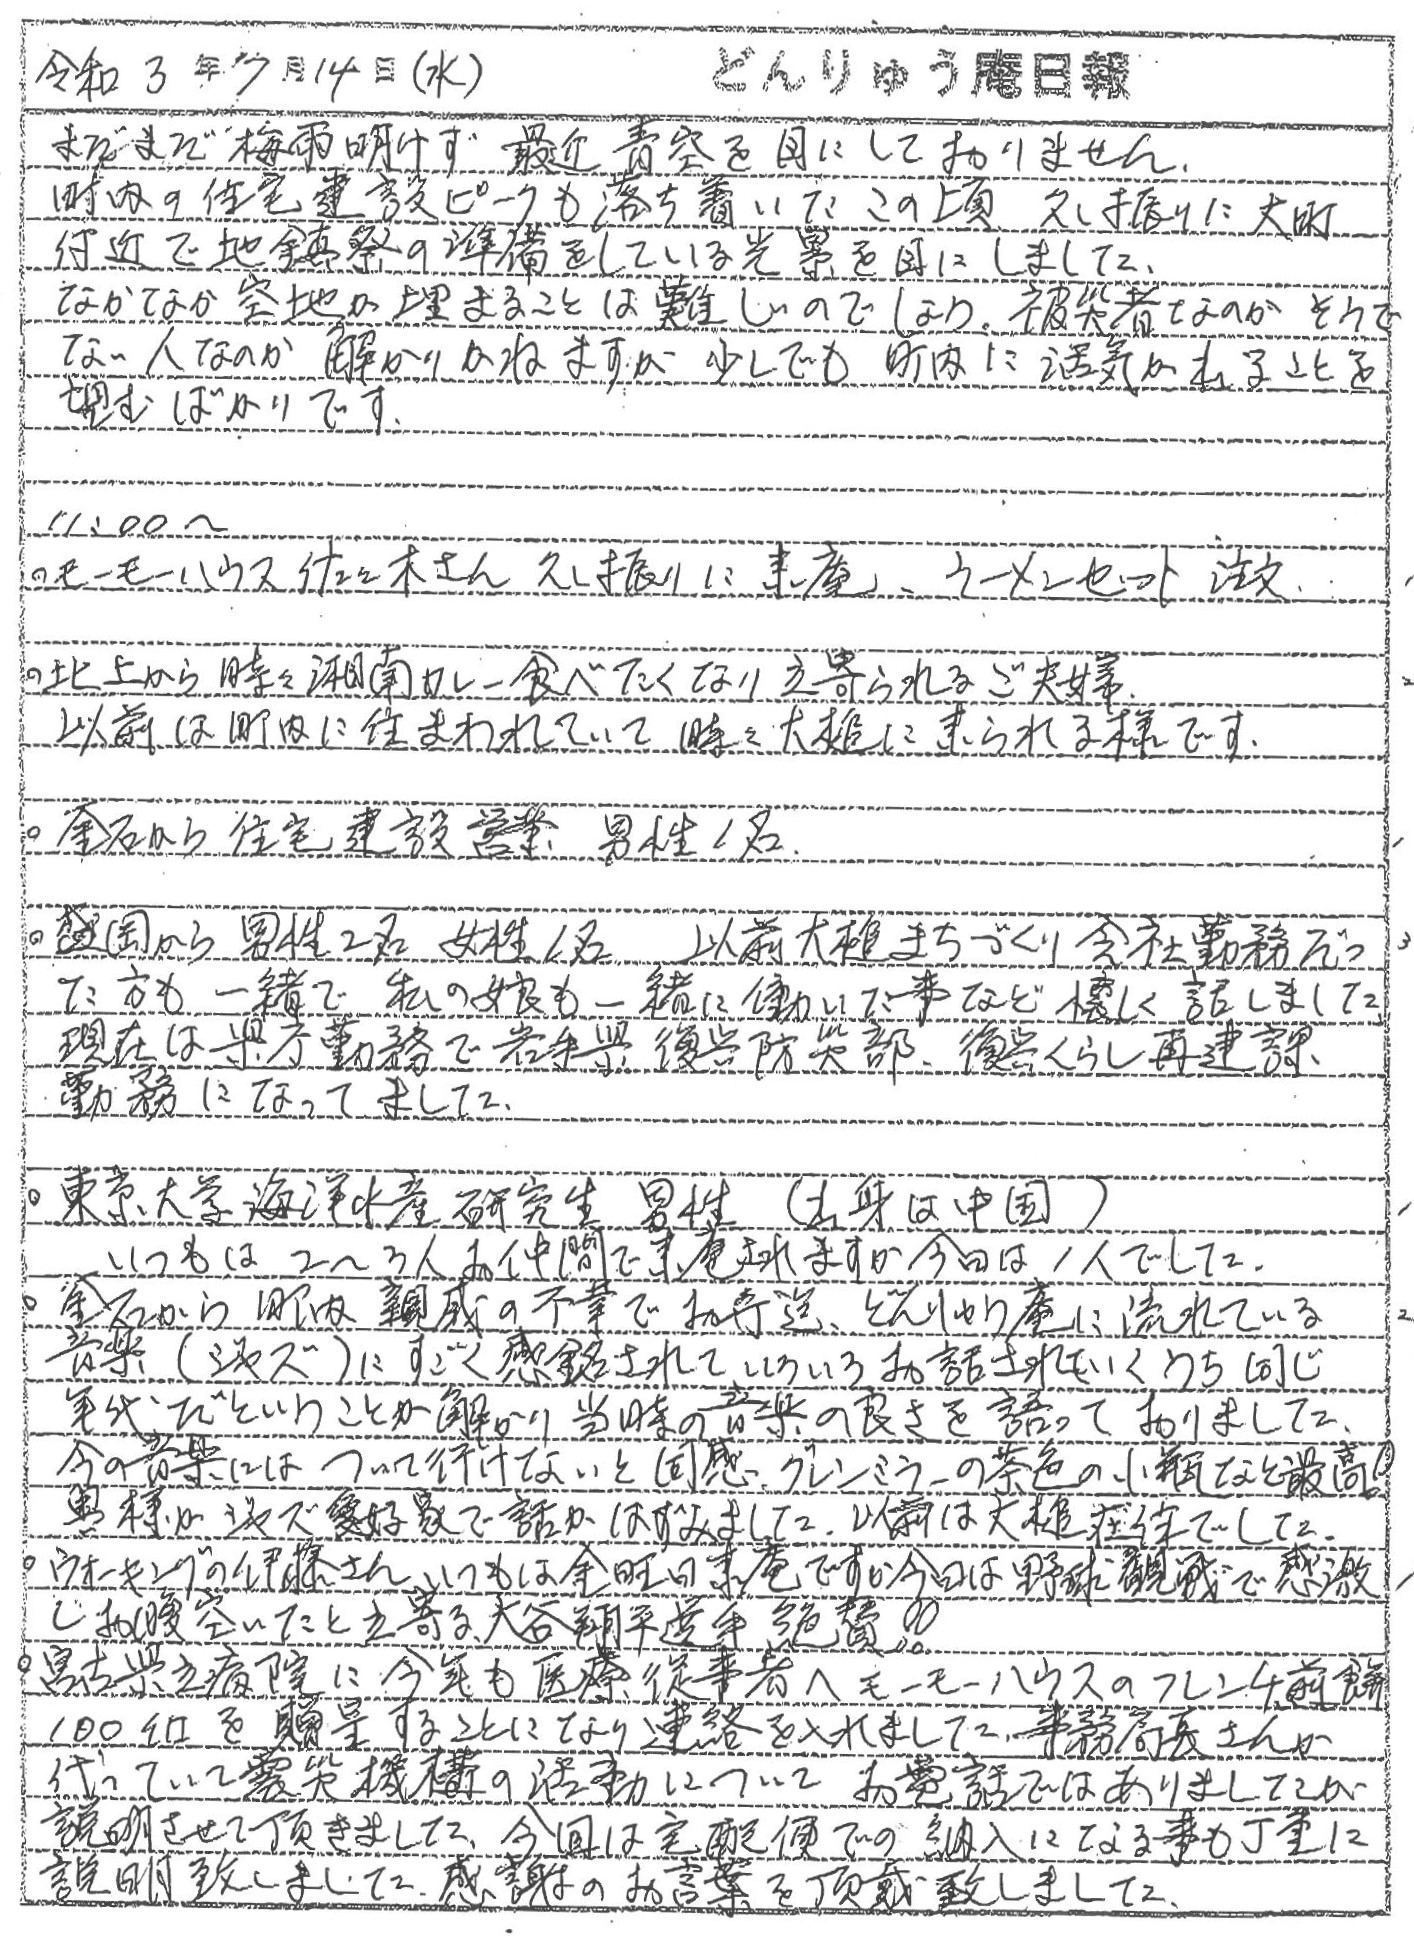 令和3年7月14日(水) どんりゅう庵日報
まだまだ梅雨明けず 最近青空を目にしておりません.
町内の住宅建設ピークも落ち着いたこの頃 久し振りに大町
付近で地鎮祭の準備をしている光景を目にしました、
なかなか空地が埋まることは難しいのでしょう。被災者なのか そうで
ない人なのか 解かりかねますが 少しでも 町内に活気が出ることを
望むばかりです.
11:00〜
○モーモーハウス 佐々木さん 久し振りに来庵、ラーメンセット注文.
1
○北上から時々湘南カレー食べたくなり立寄られるご夫婦.
2
以前は町内に住まわれていて 時々大槌に来られる様です.
○釜石から住宅建設営業 男性1名.
1
○盛岡から男性2名 女性1名 以前大槌まちづくり会社勤務だっ
3
た方も一緒で 私の娘も一緒に働いた事など懐しく話しました
現在は県庁勤務で岩手県復興防災部、復興くらし再建課
勤務になってました、
○東京大学海洋水産研究生 男性 (出身は中国)
1
いつもは2〜3人お仲間で来庵されますが今日は1人でした.
○釜石から町内親戚の不幸でお寄送、どんりゅう庵に流れている
2
音楽(ジャズ)にすごく感銘されていろいろお話されていくうち同じ
年代だということが解かり当時の音楽の良さを語っておりました、
今の音楽にはついて行けないと同感、グレンミラーの茶色の小瓶など最高!!
奥様がジャズ愛好家で話がはずみました.以前は大槌在住でした.
○ウォーキングの伊藤さんいつもは金曜日来庵ですが今日は野球観戦で感激
1
しお腹空いたと立寄る、大谷翔平選手絶賛!!
○宮古県立病院に今年も医療従事者へモーモーハウスのフレンチ煎餅
100個を贈呈することになり連絡を入れました、事務局長さんが
代っていて震災機構の活動について お電話ではありましたが
説明させて頂きました、今回は宅配便での納入になる事も丁重に
説明致しました.感謝のお言葉を頂戴致しました、